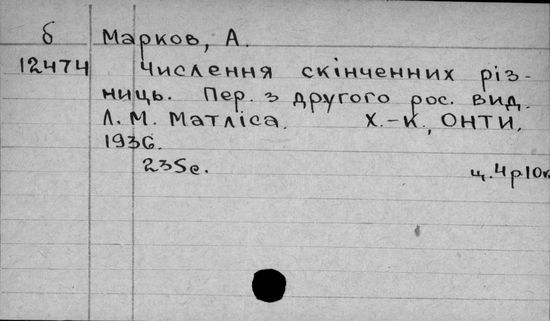 б Марков, А.
12474 Числення скінченних різ-
ниць. Пер. з другого рос. вид.
Л. М. Матліса. Х.-К., ОНТИ,
1936.
235с. ц. 4р10к